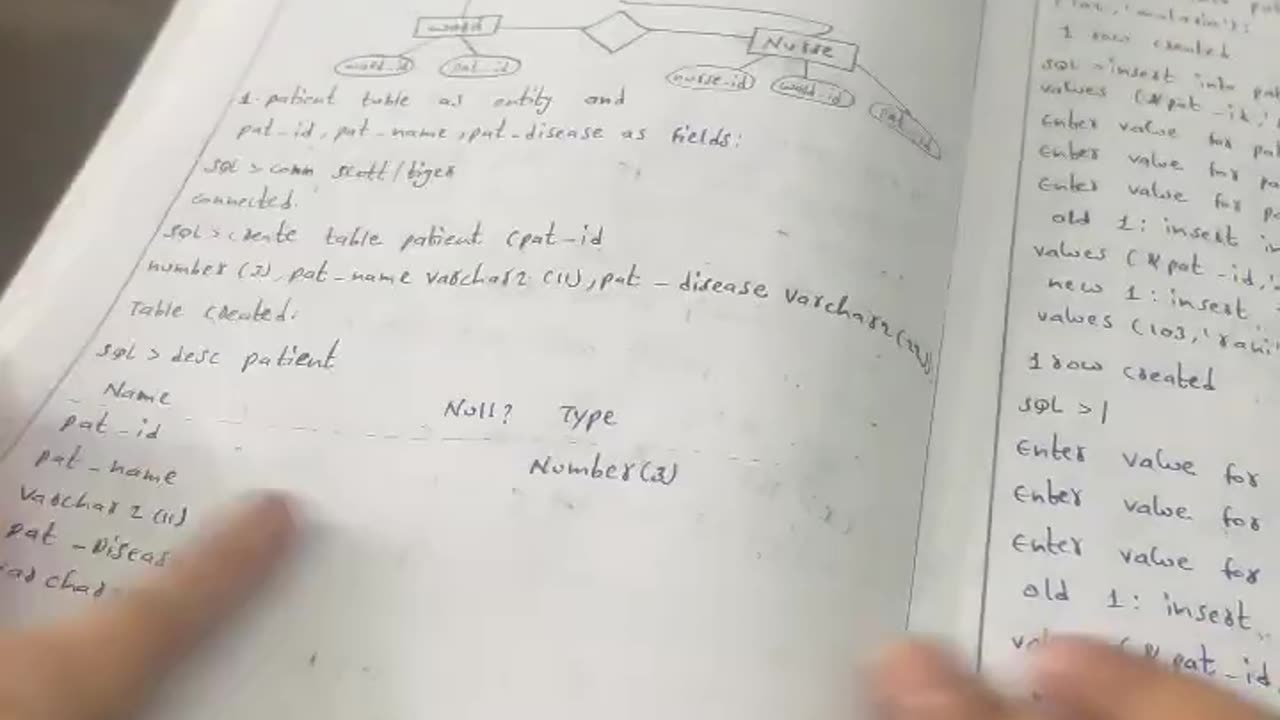 ward
Nurse
ward_id
pat_id
nurse-id
ward_id
pat_id
1. patient table as entity and
pat_id, pat_name, pat_disease as fields:
SQL > conn scott/tiger
connected.
SQL > create table patient (pat_id
number(3), pat_name varchar2(11), pat_disease varchar2(
Table created.
SQL > desc patient
Name Null? Type
pat_id
Number(3)
pat_name
varchar2(11)
pat_Diseas
1 row created
SQL > insert into pat
values (&pat_id,'
Enter value for pa
Enter value for pa
Enter value for pa
old 1: insert in
values (&pat_id,'
new 1: insert
values (103,'rani'
1 row created
SQL > /
Enter value for
Enter value for
Enter value for
old 1: insert
(&pat_id,